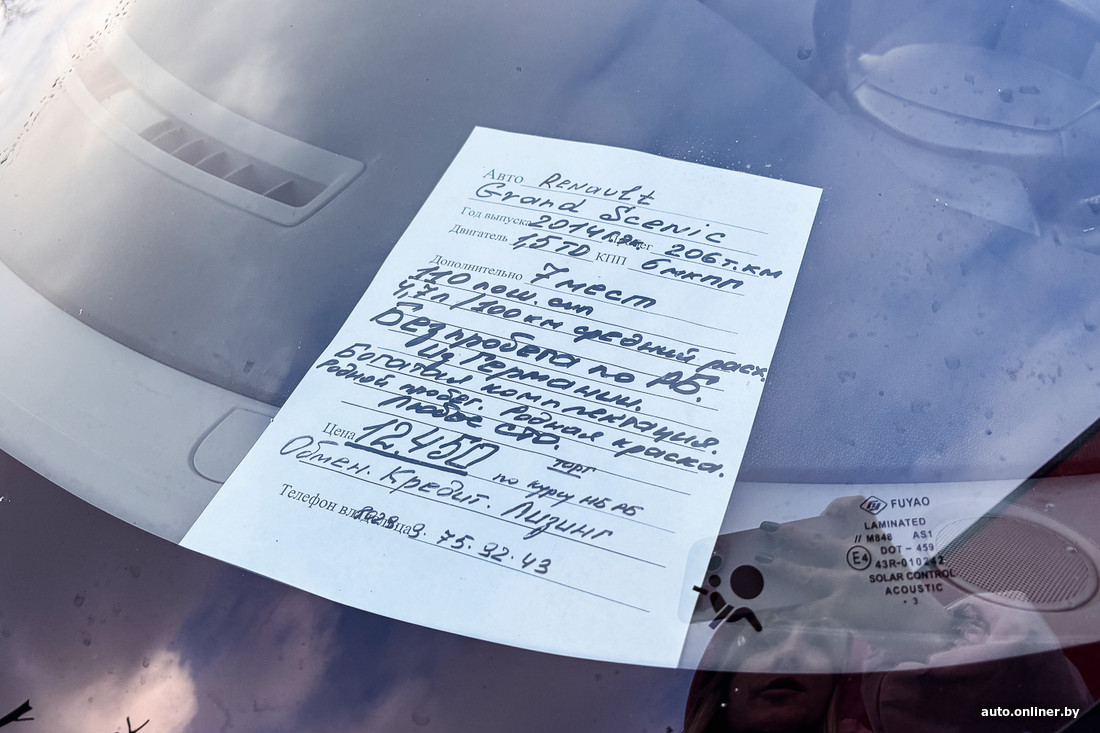 Авто RENAULT
Grand Scenic
Год выпуска 2014 206 т.км
Двигатель 1,5 TD КПП 6 мкпп
Дополнительно 7 мест
110 лош. сил
4,7л/100км средний расх.
Без пробега по РБ.
Из Германии.
Богатая комплектация.
Родной пробег. Родная краска.
Любое СТО.
Цена 12.450 торг
по курсу НБ РБ
Обмен. Кредит. Лизинг
Телефон владельца 75.92.43
FUYAO
LAMINATED
// M848 AS1
DOT-459
E4 43R-010242
SOLAR CONTROL
ACOUSTIC
. 3
auto.onliner.by